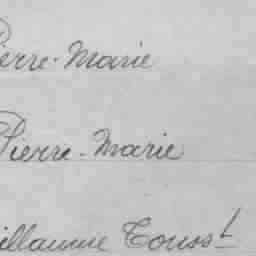 Pierre-Marie
Pierre-Marie
illaume Tousst